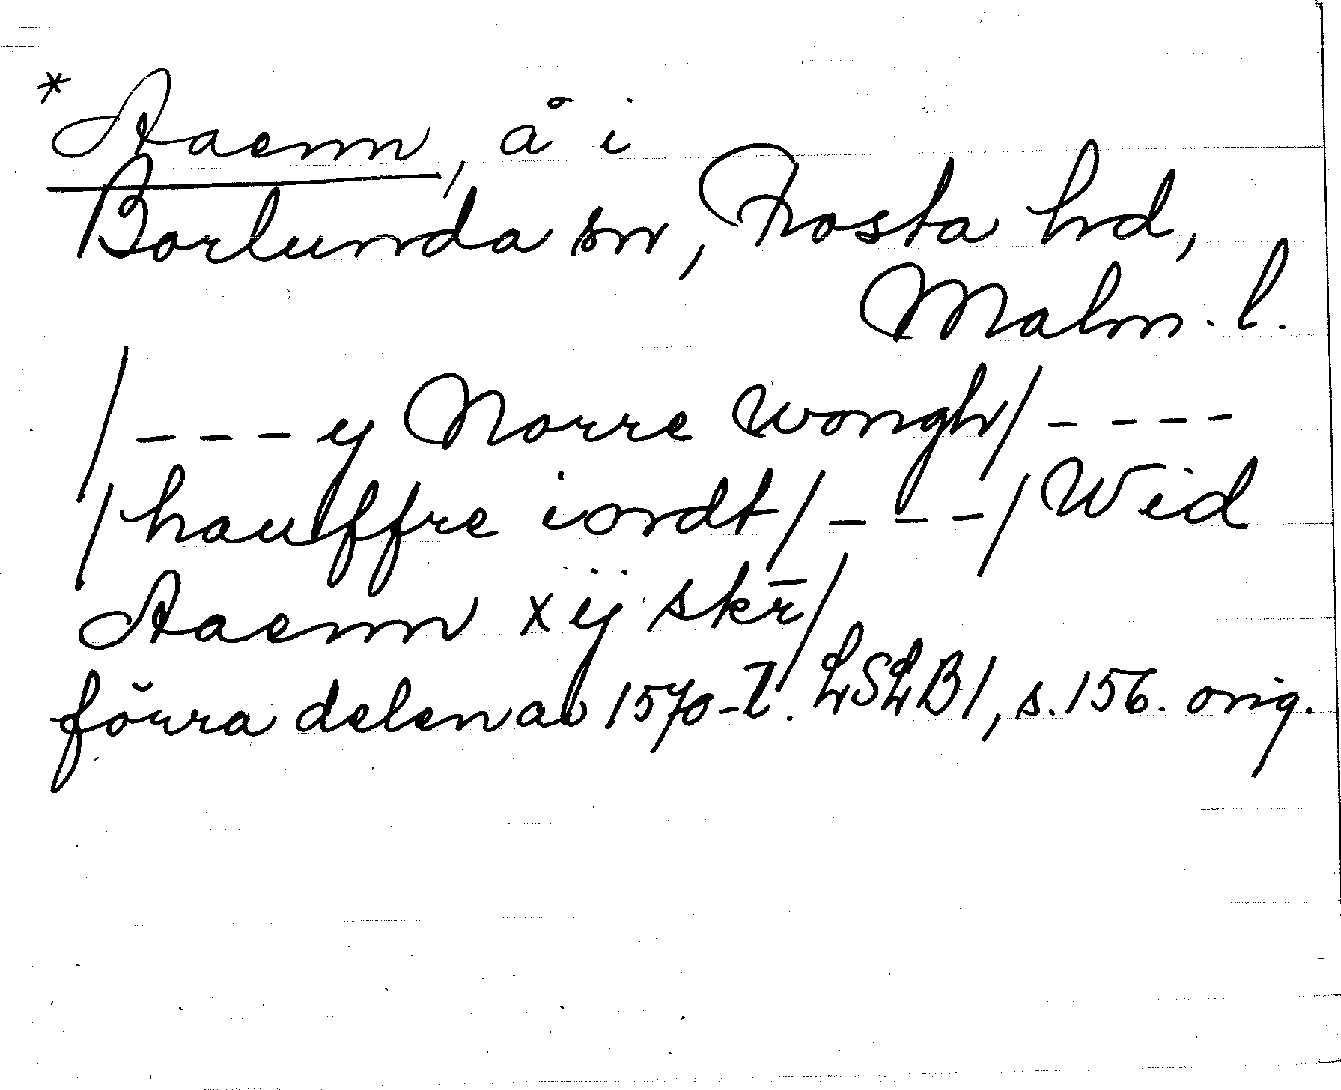 *Aaenn, å i
Borlunda sn, Frosta hd,
Malm. l.
/---y Norre wongh/----
/hauffre iordt/---/Wid
Aaenn xij skr̄/
förra delen av 1570-t. LSLB1, s.156. orig.